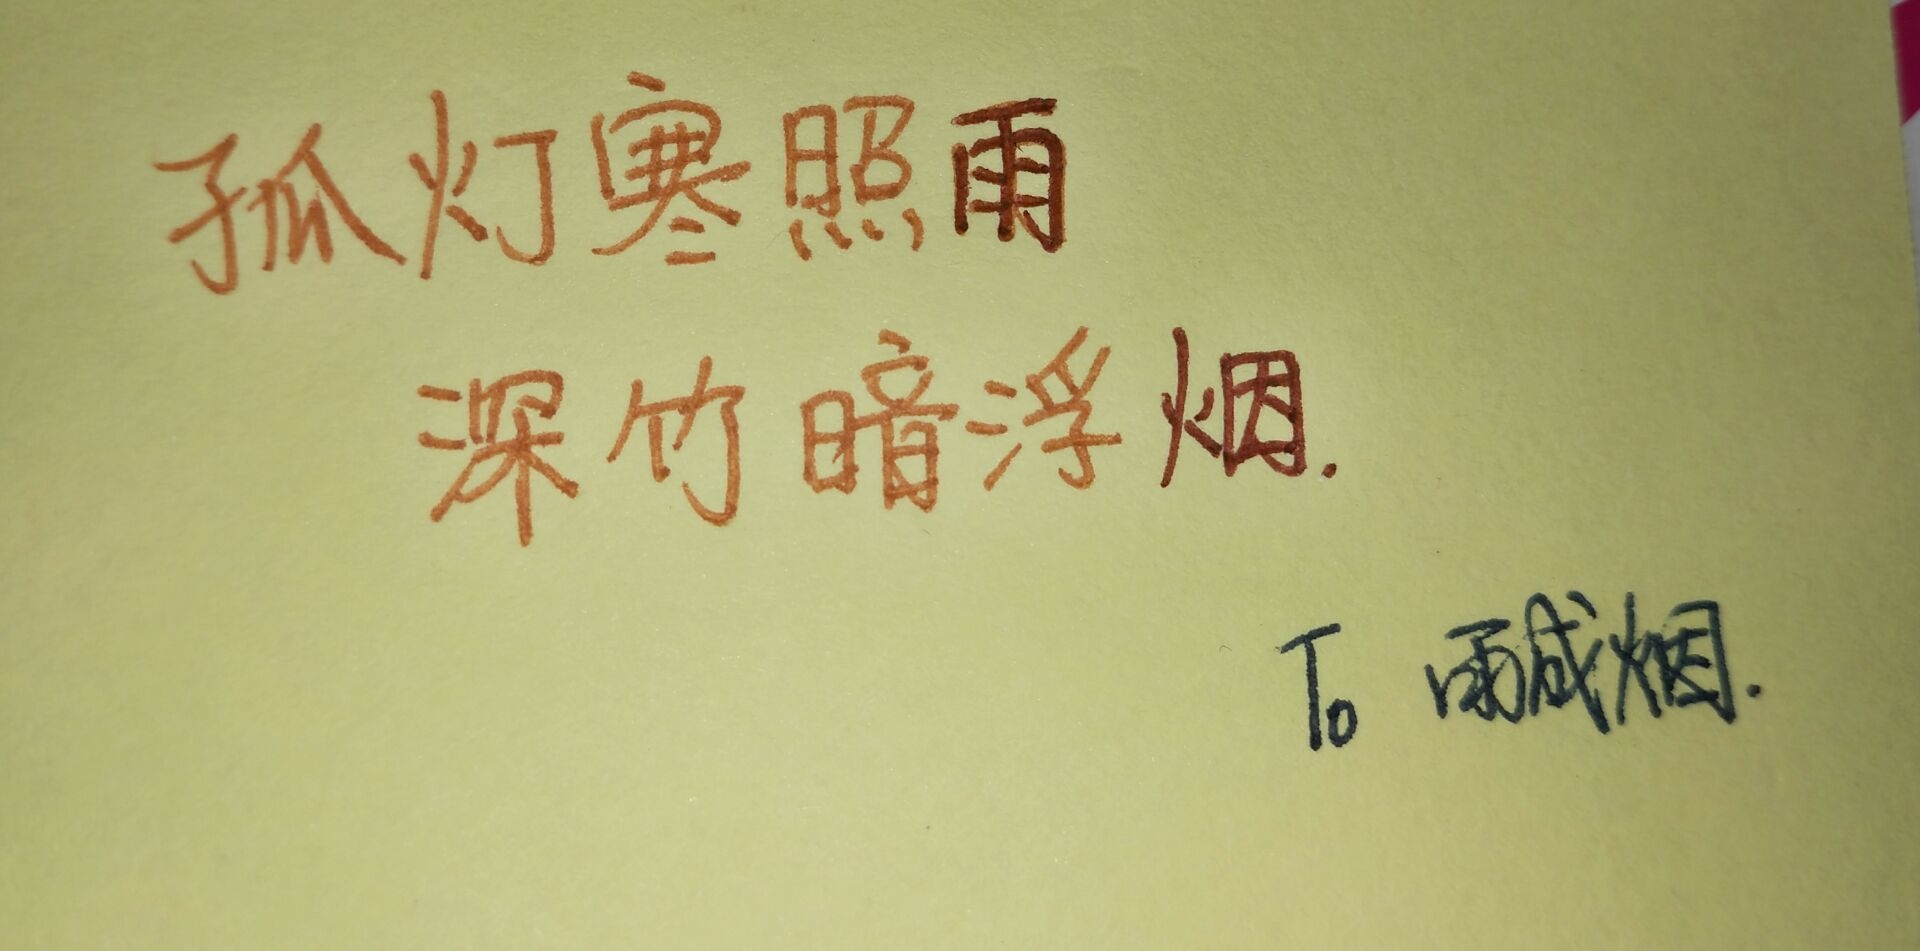 孤灯寒照雨
深竹暗浮烟.
To 烟.